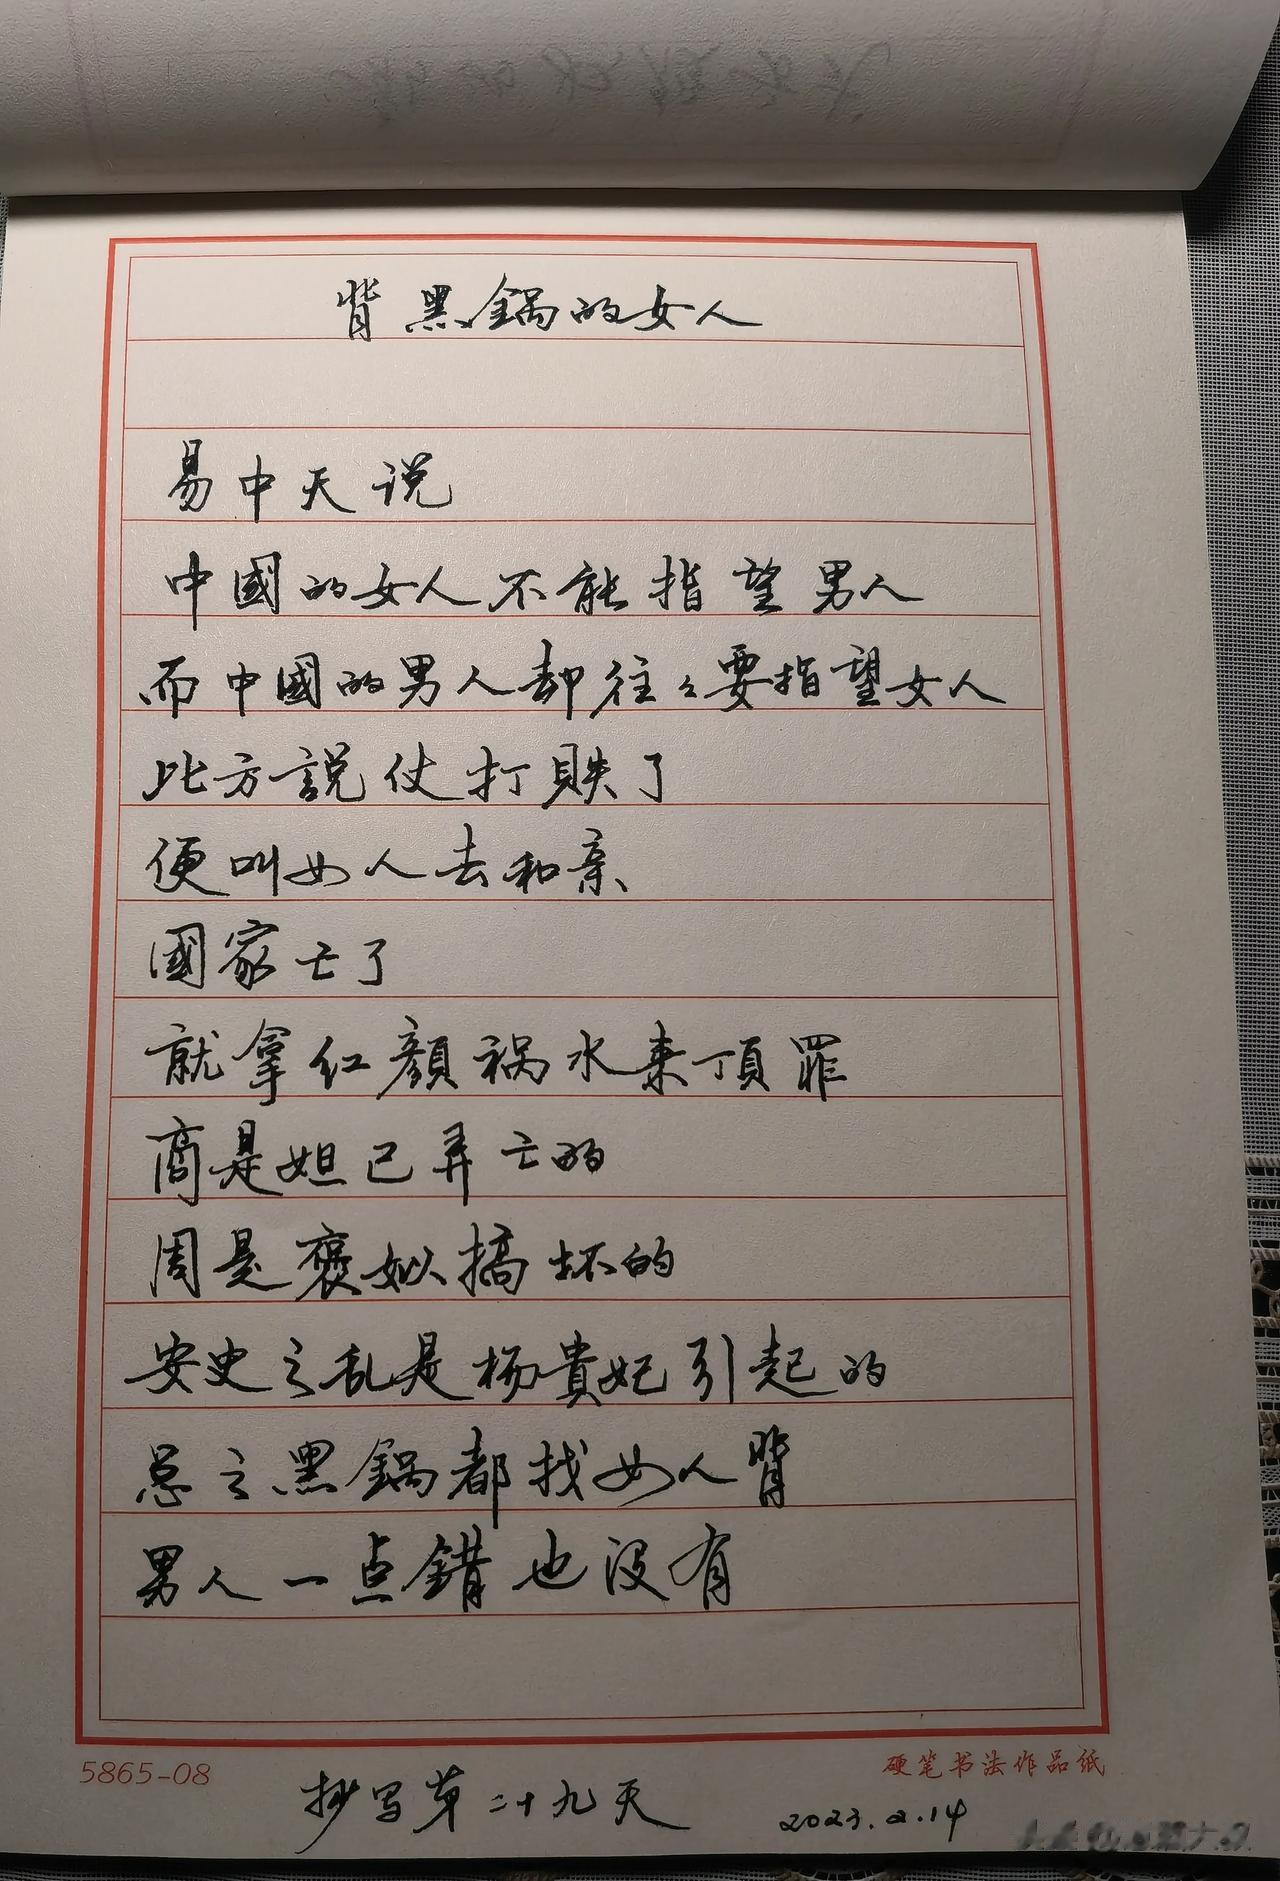 背黑鍋的女人
易中天说
中國的女人不能指望男人
而中國的男人却往々要指望女人
比方説仗打败了
便叫女人去和亲
國家亡了
就拿红顔祸水来顶罪
商是妲己弄亡的
周是褒姒搞坏的
安史之乱是杨貴妃引起的
总之黑鍋都找女人背
男人一点錯也没有
5865-08
硬笔书法作品纸
抄写第二十九天
2023.2.14